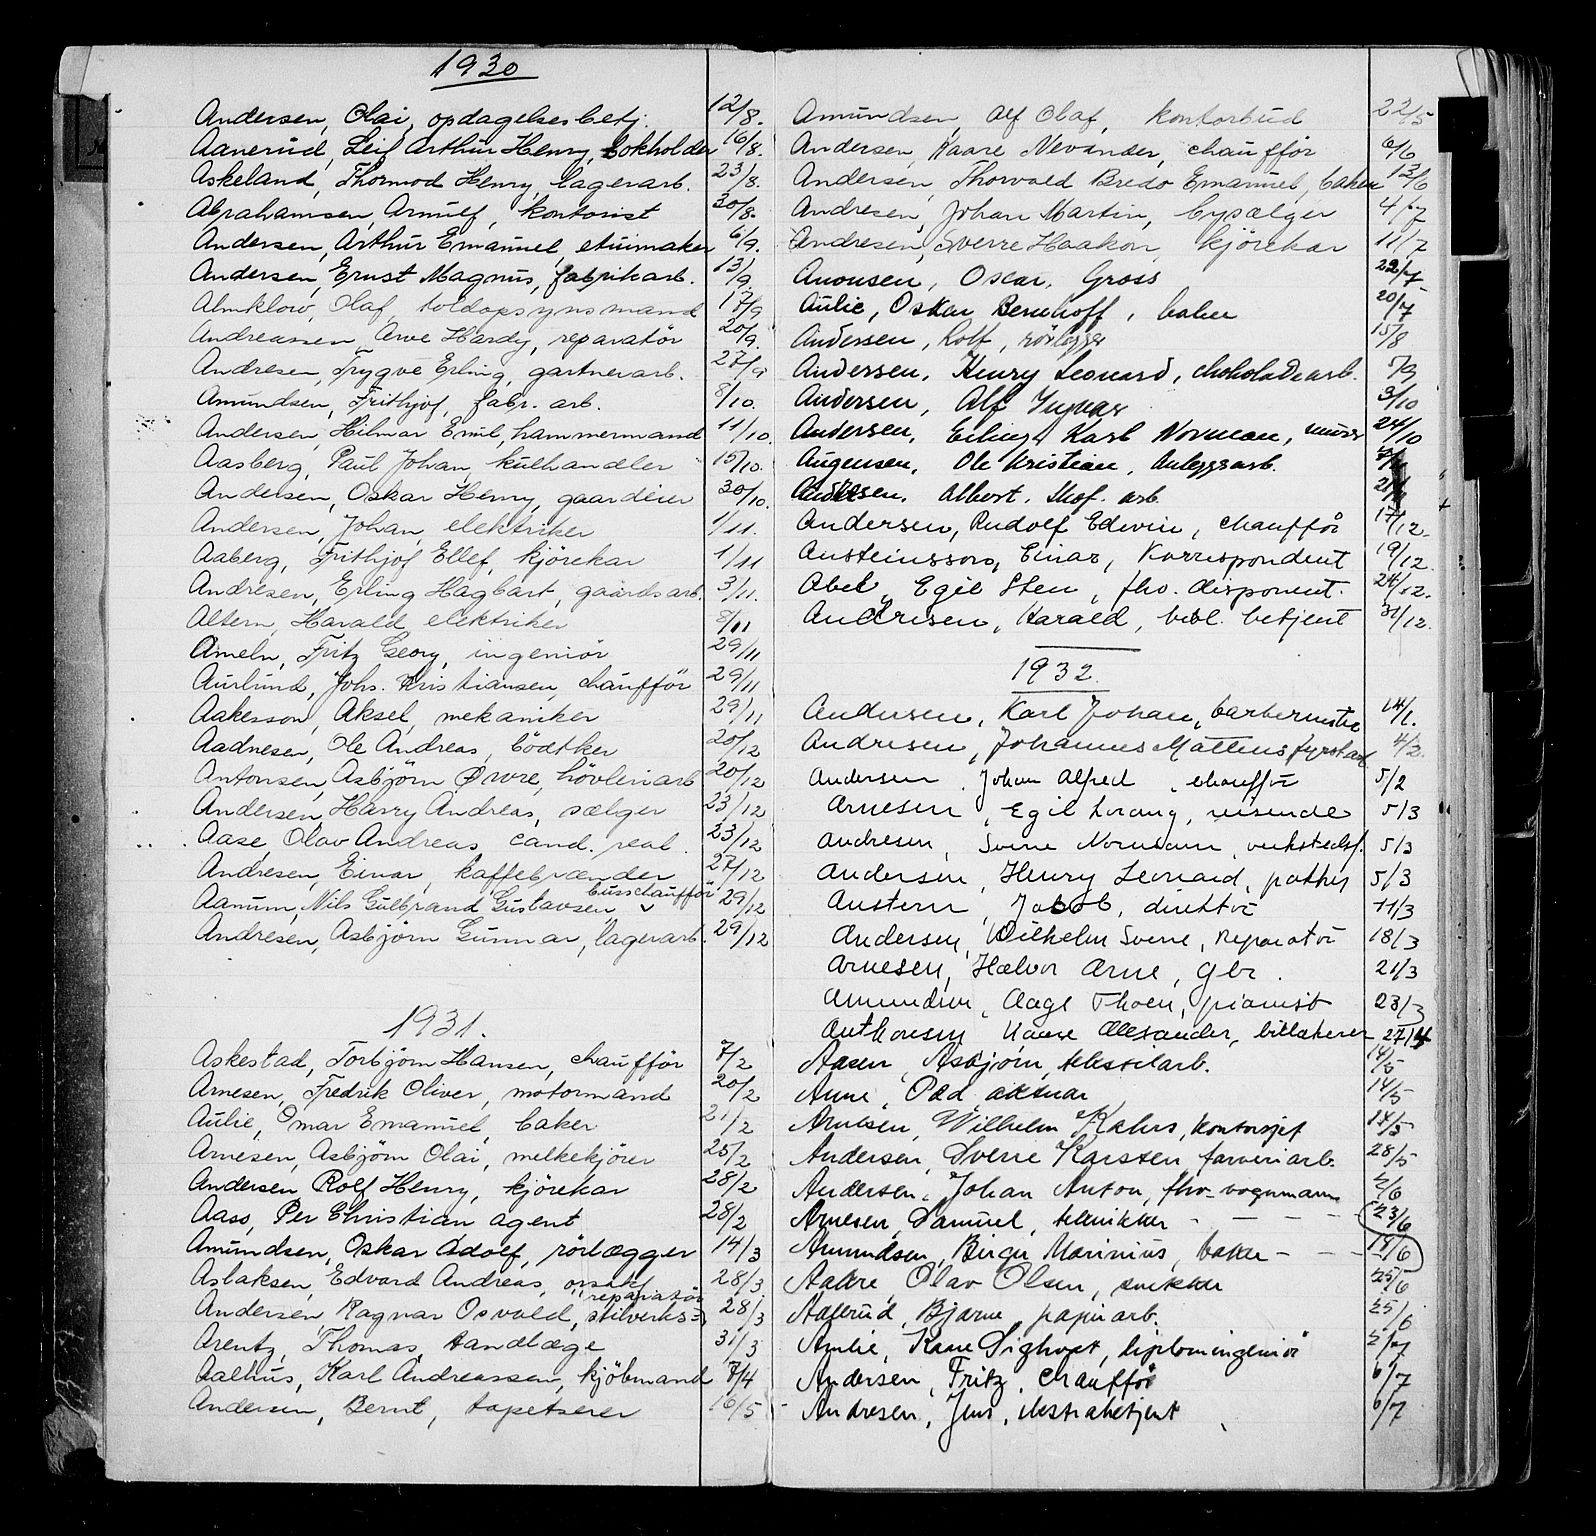 1930
Andersen, Olai, opdagelsesbetj. 12/8.
Aanerud, Leif Arthur Henry, bokholder 16/8.
Askeland, Thormod Henry, lagerarb. 23/8.
Abrahamsen, Arnulf, kontorist 30/8.
Andersen, Arthur Emanuel, etuimaker 6/9.
Andersen, Ernst Magnus, fabrikarb. 13/9.
Almklov, Olaf, toldopsynsmand 17/9
Andreassen, Arve Hardy, reparatör 20/9.
Andresen, Trygve Erling, gartnerarb. 27/9
Amundsen, Frithjof, fabr. arb. 8/10.
Andersen, Hilmar Emil, hammermand 11/10.
Aasberg, Paul Johan, kulhandler 15/10.
Andersen, Oskar Henry, gaardeier 30/10.
Andersen, Johan, elektriker 1/11.
Aaberg, Frithjof Ellef, kjörekar 1/11
Andresen, Erling Hagbart, gaardsarb. 3/11.
Altern, Harald, elektriker 8/11
Ameln, Fritz Georg, ingeniör 29/11
Aurlund, Johs. Kristiansen, chaufför 29/11
Aakesson, Aksel, mekaniker 29/11
Aadnesen, Ole Andreas, bödtker 20/12
Antonsen, Asbjörn Örnre, hövleriarb 20/12
Andersen, Harry Andreas, sælger 23/12
Aase, Olav Andreas, cand. real. 23/12
Andresen, Einar, kaffebrænder 27/12
busschaufför
Aanum, Nils Gulbrand Gustavsen 29/12
Andresen, Asbjörn Gunnar, lagerarb. 29/12
1931.
Askestad, Torbjörn Hansen, chaufför 7/2
Arnesen, Fredrik Oliver, motormand 20/2
Aulie, Omar Emanuel, baker 21/2
Arnesen, Asbjörn Olai, melkekjörer 25/2
Andersen, Rolf Henry, kjörekar 28/2
Aass, Per Christian, agent 28/2
Amundsen, Oskar Adolf, rörlægger 14/3
Aslaksen, Edvard Andreas, 28/3
reparatör
Andersen, Ragnar Osvald, 28/3
Arentz, Thomas, tandlæge 31/3
Aalhus, Karl Andreassen, kjöbmand 7/4
Andersen, Bernt, tapetserer 16/5
Amundsen, Alf Olaf, kontorbud 22/5
Andersen, Kaare Nevander, chaufför 6/6
Andersen, Thorvald Bredo Emanuel, baker 13/6
Andresen, Johan Martin, bysælger 4/7
Andresen, Sverre Haakon, kjörekar 11/7
Anonsen, Oscar, Gross 22/7
Aulie, Oskar Bernhoff, baker 20/7
Andersen, Rolf, rörlegger 15/8
Andersen, Henry Leonard, chokoladearb.
Andersen, Alf Yngvar 3/10
Andersen, Erling Karl Norman, murer 24/10
Augensen, Ole Kristian, Anleggsarb.
Andersen, Albert, Skof. arb.
Andersen, Rudolf Edvin, chaufför 17/12.
Austeinsson, Einar, Korrespondent 19/12.
Abel, Egil Sten, fhv. disponent. 24/12.
Andresen, Harald, bibl. betjent 31/12.
1932.
Andersen, Karl Johan, barbermester 14/1.
Andresen, Johannes Mattens 4/2.
Andersen, Johan Alfred, chaufför 5/2
Arnesen, Egil Lorang, reisende 5/3
Andresen, Sverre Normann, verkstedsf. 5/3
Andersen, Henry Leonard, 5/3
Austern, Jakob, direktör 11/3
Andersen, Wilhelm Sverre, Reparatör 18/3
Arnesen, Halvor Arne, Gbr. 21/3
Amundsen, Aage Thoen, pianist 23/3
Anthonsen, Kaare Alexander, billakerer 27/4
Aasen, Asbjörn, kksselarb. 14/5
Anne, Odd, aktuar 14/5
Arnesen, Wilhelm Kahrs, kontorsjef 14/5
Andersen, Sverre Karsten, farveriarb. 28/5
Andersen, Johan Anton, fhv. vognmann 2/6
Arnesen, Samuel, tekniker - - - - 23/6
Amundsen, Birger Marinius, baker - - - 14/6
Aakre, Olav Olsen, snekker 25/6
Aaserud, Bjarne, papirarb. 25/6
Amlie, Kaare Sighvat, diplomingeniör 2/7
Andersen, Fritz, chaufför 6/7
Andresen, Jens, ekstrabetjent 6/7